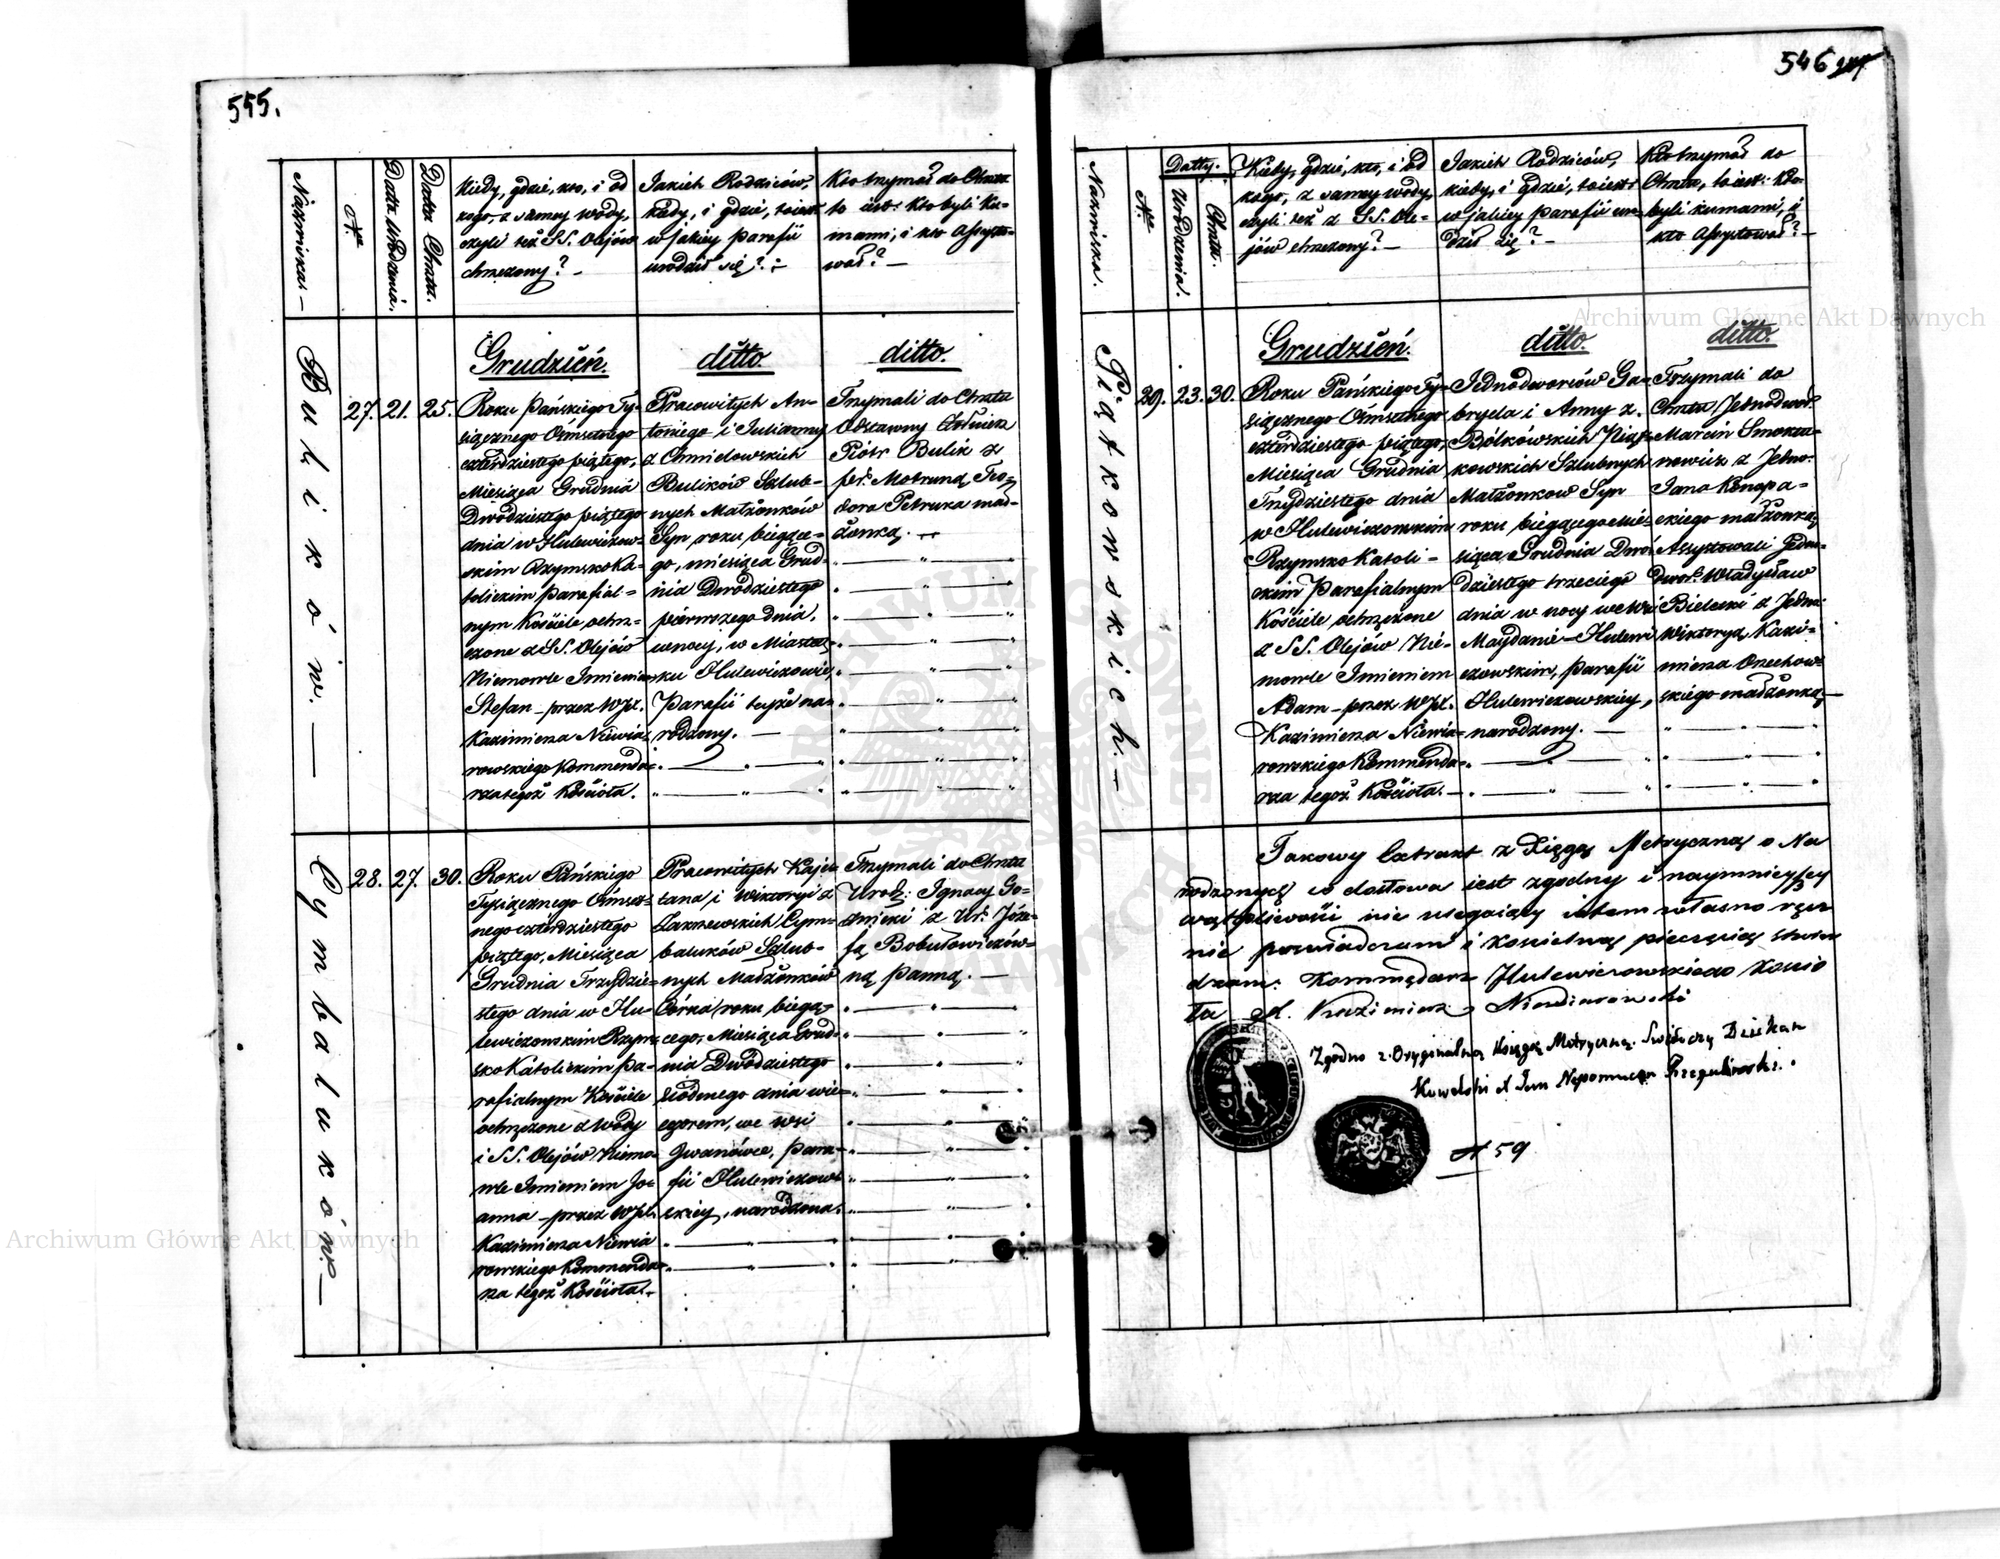 555.
Nazwiska.
Nro
Datta Urodzenia.
Datta Chrztu.
Kiedy, gdzie, kto, i od
kogo, z samey wody,
czyli też SS. Olejów
chrzczony? –
Jakich Rodziców,
kiedy, i gdzie, toiest
w jakiey parafii
urodził się? –
Kto trzymał do Chrztu
to iest: kto byli ku-
mami, i kto assysto-
wał? –
Grudzień.
ditto.
ditto.
Bulików. –
27. 21. 25.
Roku Pańskiego Ty-
siącznego Ośmsetnego
czterdziestego piątego,
Miesiąca Grudnia
Dwódziestego piątego
dnia w Hulewiczow-
skim Rzymsko Ka-
tolickim Parafial-
nym Kościele ochrz-
czone z SS. Olejów
Niemowle Imieniem
Stefan – przez WJX.
Kazimierza Niewia-
rowskiego Kommenda-
rza tegoż Kościoła.
Pracowitych An-
toniego i Julianny
z Chmielowskich
Bulików Szlub-
nych Małżonków
Syn, roku biegące-
go, miesiąca Grud-
nia Dwódziestego
pierwszego dnia,
w nocy, w Miastecz-
ku Hulewiczowie,
Parafii tejże na-
rodzony. –
Trzymali do Chrztu
Odstawny Żołnierz
Piotr Bulik z
Motruną Teo-
dora Petruka mał-
żonką. –
Cymbaluków. –
28. 27. 30.
Roku Pańskiego
Tysiącznego Ośmset-
nego czterdziestego
piątego, Miesiąca
Grudnia Trzydzie-
stego dnia w Hu-
lewiczowskim Rzym-
sko Katolickim Pa-
rafialnym Kościele
ochrzczone z Wody
i SS. Olejów Niemo-
wle Imieniem Jo-
anna – przez WJX.
Kazimierza Niewia
rowskiego Kommenda-
rza tegoż Kościoła. –
Pracowitych Kaje-
tana i Wiktoryi z
Cym-
baluków Szlub-
nych Małżonków
Córka, roku biegą-
cego, Miesiąca Grud-
nia Dwódziestego
siódmego dnia wie-
czorem, we wsi
Iwanówce, para-
fii Hulewiczow-
skiey, narodzona.
Trzymali do Chrztu
Urodz: Ignacy Go-
z Ur. Józe-
fą Bobutowiczów-
ną Panną. –
546
Nazwiska.
Nro
Datty.
Urodzenia.
Chrztu.
Kiedy, gdzie, kto, i od
kogo, z samey wody,
czyli też z SS. Ole-
jów chrzczony? –
Jakich Rodziców,
kiedy, i gdzie, toiest:
w jakiey parafii uro-
dził się? –
Kto trzymał do
Chrztu, to iest: kto
byli kumami, i
kto Assystował? –
Grudzień.
ditto.
ditto.
Piątkowskich. –
29. 23. 30.
Roku Pańskiego Ty-
siącznego Ośmsetnego
czterdziestego piątego,
Miesiąca Grudnia
Trzydziestego dnia
w Hulewiczowskim
Rzymsko Katoli-
ckim Parafialnym
Kościele ochrzczone
z SS. Olejów Nie-
mowle Imieniem
Adam – przez WJX.
Kazimierza Niewia-
rowskiego Kommenda-
rza tegoż Kościoła. –
Jednodworców Ga-
bryela i Anny z
Bólkowskich Piąt-
kowskich Szlubnych
Małżonkow Syn
roku biegącego mie-
siąca Grudnia Dwó-
dziestego trzeciego
dnia w nocy we Wsi
Maydanie Hulewi
czowskim, parafii
Hulewiczowskiey,
narodzony. –
Trzymali do
Chrztu Jednodwor.
Marcin
z Jedno:
Jana Konopa-
ckiego małżonką,
Assystowali Jedno-
dwor. Władysław
Bielecki z Jedno:
Wiktoryą Kazi-
mierza Orzechow-
skiego małżonką, –
Takowy Extrakt z Xięgą Metryczną o Na
rodzonych co dosłowa iest zgodny i naymnieyszey
wątpliwości nie ulegaiący iż tem własno ręcz
nie poswiadczam i kościelną pieczęcią stwier
dzam: Kommędarz Hulewiczowskiego Kościo
ła X. Kazimierz Niewiarowski
Zgodno z Oryginalną Księgą Metryczną Swiadczy Dziekan
Kowelski X Jan Nepomucen
N 59
Archiwum Główne Akt Dawnych
Archiwum Główne Akt Dawnych
ARCHIWUM GŁÓWNE AKT DAWNYCH